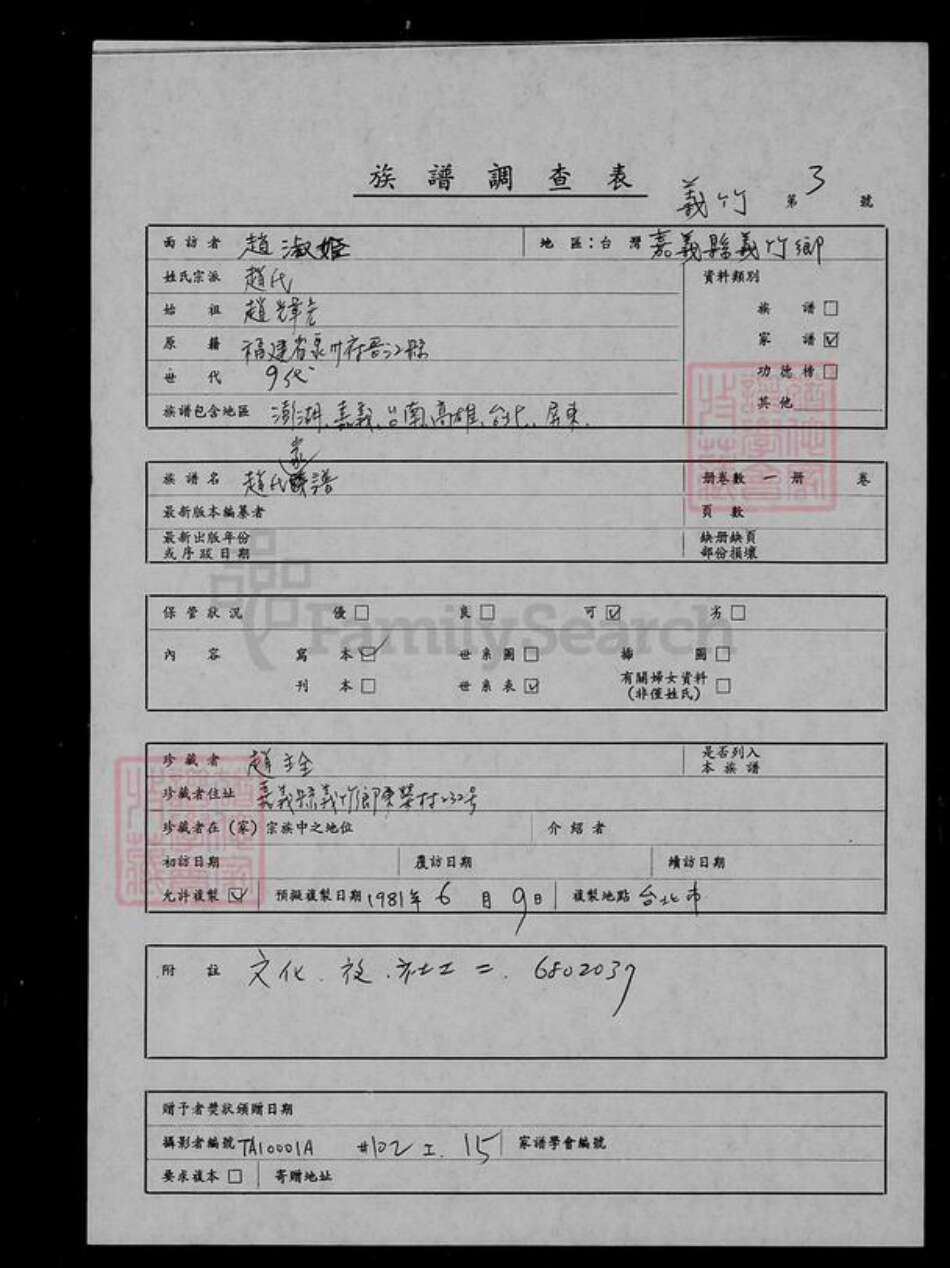 族譜調查表
義竹 第 3 號
面訪者 趙淑姬 地區：台灣 嘉義縣義竹鄉
姓氏宗派 趙氏 資料類別
始祖 趙 族譜☐
原籍 福建省泉州府晋江縣 家譜☑
世代 9代 功德榜☐
族譜包含地區 澎湖、嘉義、台南、高雄、台北、屏東. 其他
家
族譜名 趙氏譜 册卷數 一 册 卷
最新版本編纂者 頁數
最新出版年份或序跋日期 缺册缺頁部份損壞
保管狀況 優☐ 良☐ 可☑ 劣☐
內容 寫本☑ 世系圖☐ 插圖☐
刊本☐ 世系表☑ 有關婦女資料(非僅姓氏)☐
珍藏者 趙 是否列入本族譜
珍藏者住址 嘉義縣義竹鄉東榮村232号
珍藏者在（家）宗族中之地位 介紹者
初訪日期 覆訪日期 續訪日期
允許複製☑ 預擬複製日期 1981年 6 月 9日 複製地點 台北市
附註 文化. 夜. 社工二. 6802037
贈予者獎狀頒贈日期
攝影者編號 TA10001A #102 I. 15 家譜學會編號
要求複本☐ 寄贈地址
FamilySearch